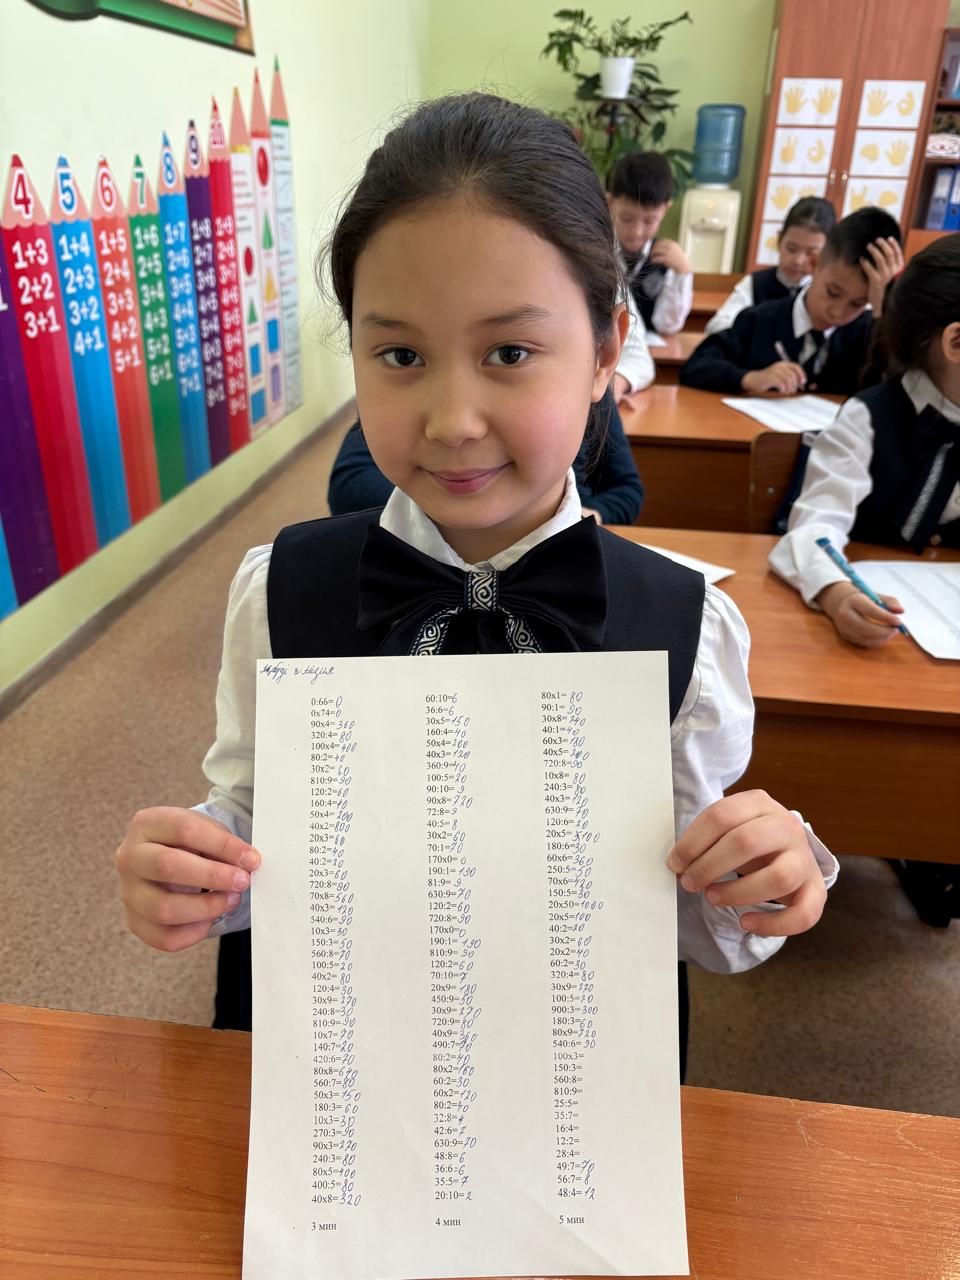 4
1+3
2+2
3+1
5
1+4
2+3
3+2
4+1
6
1+5
2+4
3+3
4+2
5+1
7
1+6
2+5
3+4
4+3
5+2
6+1
8
1+7
2+6
3+5
4+4
5+3
6+2
7+1
9
1+8
2+7
3+6
4+5
5+4
6+3
7+2
8+1
10
1+9
2+8
3+7
4+6
5+5
6+4
7+3
8+2
9+1
0:66=0
0x74=0
90x4=360
320:4=80
100x4=400
80:2=40
30x2=60
810:9=90
120:2=60
160:4=40
50x4=200
40x2=800
20x3=60
80:2=40
40:2=20
20x3=60
720:8=90
70x8=560
40x3=120
540:6=90
10x3=30
150:3=50
560:8=70
100:5=20
40x2=80
120:4=30
30x9=270
240:8=30
810:9=90
10x7=70
140:7=20
420:6=70
80x8=640
560:7=80
50x3=150
180:3=60
10x3=30
270:3=90
90x3=270
240:3=80
80x5=400
400:5=80
40x8=320
3 мин
60:10=6
36:6=6
30x5=150
160:4=40
50x4=200
40x3=120
360:9=40
100:5=20
90:10=9
90x8=720
72:8=9
40:5=8
30x2=60
70:1=70
170x0=0
190:1=190
81:9=9
630:9=70
120:2=60
720:8=90
170x0=0
190:1=190
810:9=90
120:2=60
70:10=7
20x9=180
450:9=50
30x9=270
720:9=80
40x9=360
490:7=70
80:2=40
80x2=160
60:2=30
60x2=120
80:2=40
32:8=4
42:6=7
630:9=70
48:8=6
36:6=6
35:5=7
20:10=2
4 мин
80x1=80
90:1=90
30x8=240
40:1=40
60x3=180
40x5=200
720:8=90
10x8=80
240:3=80
40x3=120
630:9=70
120:6=20
20x5=100
180:6=30
60x6=360
250:5=50
70x6=420
150:5=30
20x50=1000
20x5=100
40:2=20
30x2=60
20x2=40
60:2=30
320:4=80
30x9=270
100:5=20
900:3=300
180:3=60
80x9=720
540:6=90
100x3=
150:3=
560:8=
810:9=
25:5=
35:7=
16:4=
12:2=
28:4=
49:7=70
56:7=8
48:4=12
5 мин